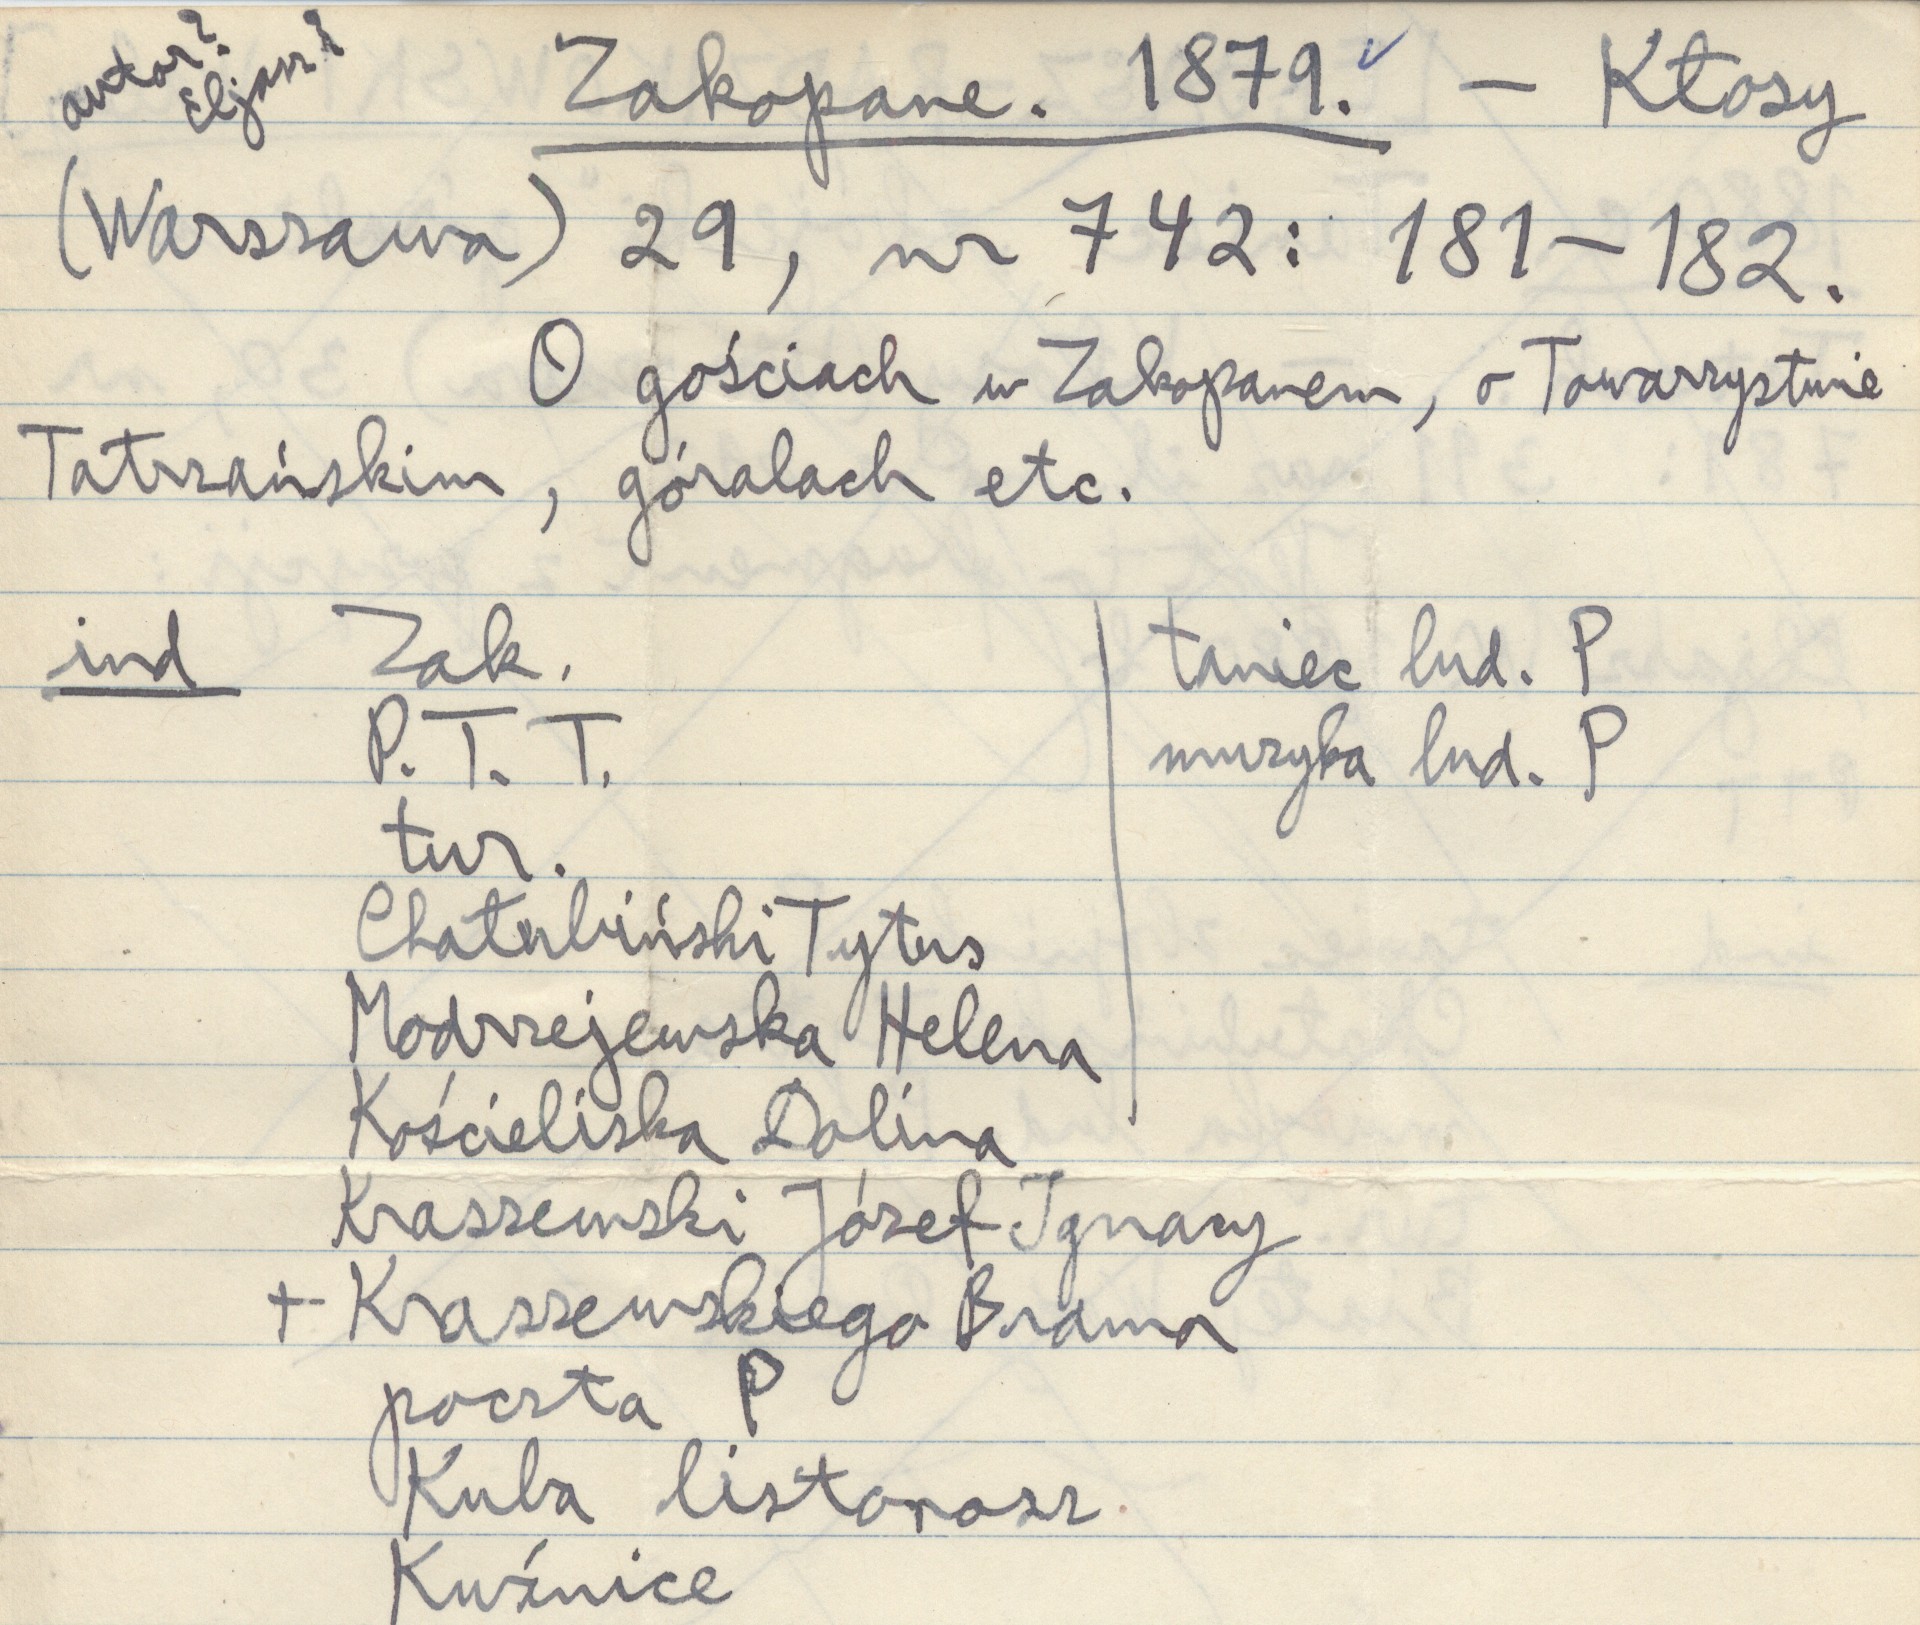 autor?
Eljasz?
Zakopane. 1879. ✓ — Kłosy
(Warszawa) 29, nr 742: 181–182.
O gościach w Zakopanem, o Towarzystwie
Tatrzańskim, góralach etc.
ind Zak.
P.T.T.
tur.
Chałubiński Tytus
Modrzejewska Helena
Kościeliska Dolina
Kraszewski Józef Ignacy
+ Kraszewskiego Brama
poczta P
Kuba listonosz
Kuźnice
taniec lud. P
muzyka lud. P